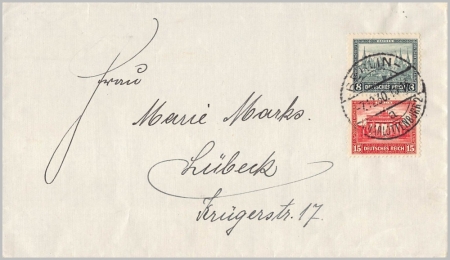 Frau
Marie Marks.
Lübeck
Krügerstr. 17.
8 DEUTSCHES REICH 8
BERLIN
CHARLOTTENBURG
15 DEUTSCHES REICH 15